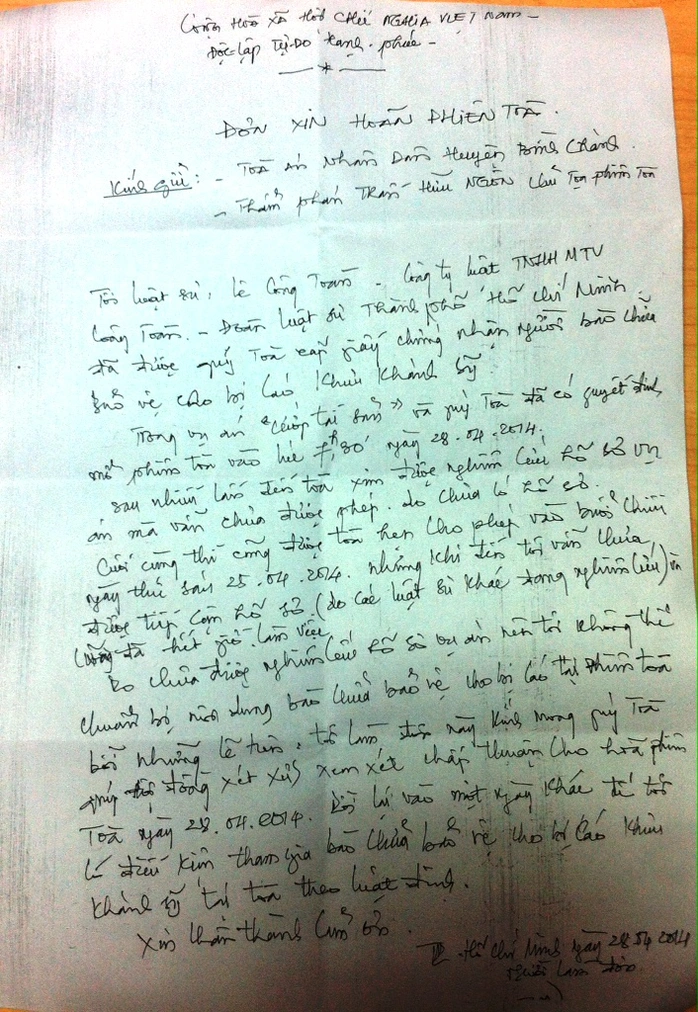 Cộng Hoà xã Hội Chủ NGHĨA VIỆT Nam -
Độc-lập Tự-Do Hạnh-phúc -
— * —
ĐƠN XIN HOÃN PHIÊN TOÀ.
Kính gửi: - TOÀ ÁN Nhân Dân Huyện Bình Chánh.
- Thẩm phán TRẦN HỮU NGÔN Chủ Toạ phiên Toà
Tôi luật sư: Lê Công Toàn - Công ty luật TNHH MTV
Công Toàn. - Đoàn luật sư Thành phố Hồ Chí Minh
đã được quý Toà cấp giấy chứng nhận người bào chữa
bảo vệ cho bị cáo Khưu Khánh Sỹ
Trong vụ án "cướp tài sản" và quý Toà đã có quyết định
mở phiên toà vào lúc 7h30' ngày 28.04.2014.
sau nhiều lần đến toà xin được nghiên cứu hồ sơ vụ
án mà vẫn chưa được phép. do chưa có hồ sơ.
Cuối cùng thì cũng được toà hẹn cho phép vào buổi chiều
ngày thứ sáu 25.04.2014. nhưng khi đến tôi vẫn chưa
được tiếp cận hồ sơ. (do các luật sư khác đang nghiên cứu) và
cũng đã hết giờ làm việc
Do chưa được nghiên cứu hồ sơ vụ án nên tôi không thể
chuẩn bị nội dung bào chữa bảo vệ cho bị cáo tại phiên toà
bởi những lẽ trên, tôi làm đơn này kính mong quý Toà
quý hội đồng xét xử xem xét chấp thuận cho hoãn phiên
Toà ngày 28.04.2014. dời lại vào một ngày khác để tôi
có điều kiện tham gia bào chữa bảo vệ cho bị cáo Khưu
Khánh Sỹ tại toà theo luật định.
Xin chân thành cảm ơn.
TP. Hồ Chí Minh ngày 28.04.2014
người làm đơn.